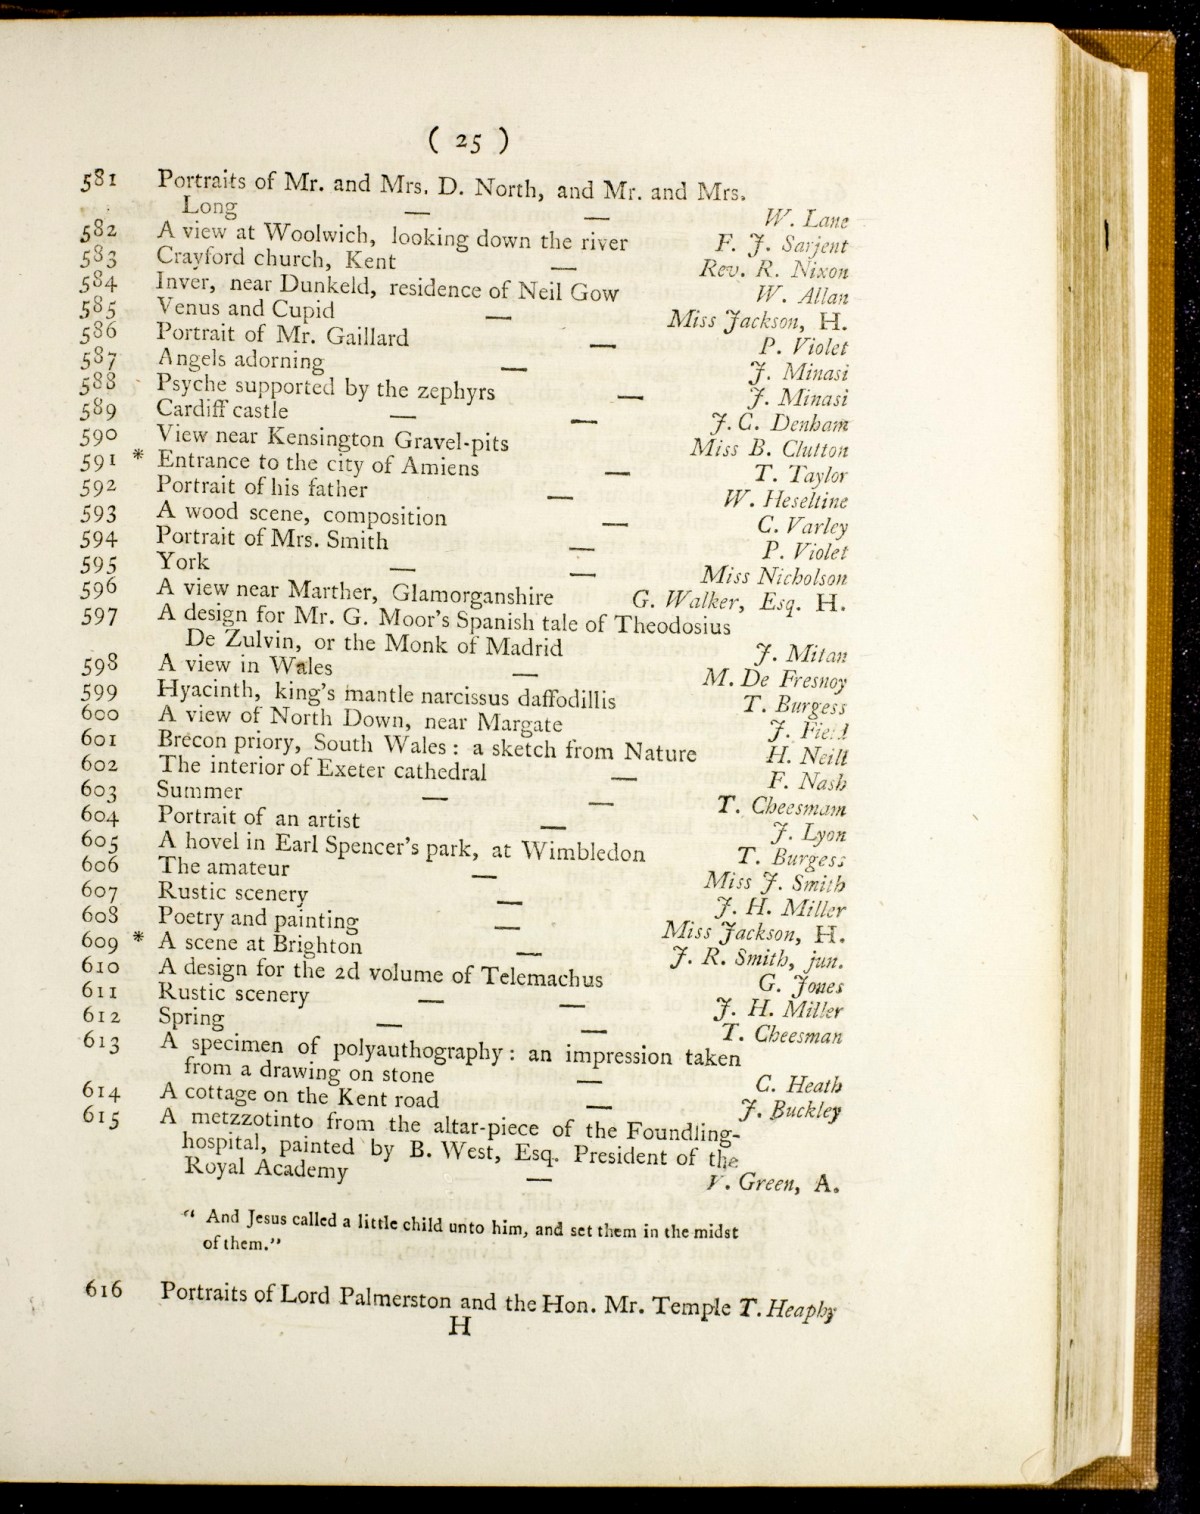 ( 25 )
581 Portraits of Mr. and Mrs. D. North, and Mr. and Mrs.
Long — — W. Lane
582 A view at Woolwich, looking down the river F. J. Sarjent
583 Crayford church, Kent — Rev. R. Nixon
584 Inver, near Dunkeld, residence of Neil Gow W. Allan
585 Venus and Cupid — Miss Jackson, H.
586 Portrait of Mr. Gaillard — P. Violet
587 Angels adorning — J. Minasi
588 Psyche supported by the zephyrs — J. Minasi
589 Cardiff castle — — J. C. Denham
590 View near Kensington Gravel-pits Miss B. Clutton
591 * Entrance to the city of Amiens — T. Taylor
592 Portrait of his father — W. Heseltine
593 A wood scene, composition — C. Varley
594 Portrait of Mrs. Smith — P. Violet
595 York — — Miss Nicholson
596 A view near Marther, Glamorganshire G. Walker, Esq. H.
597 A design for Mr. G. Moor's Spanish tale of Theodosius
De Zulvin, or the Monk of Madrid J. Mitan
598 A view in Wales — M. De Fresnoy
599 Hyacinth, king's mantle narcissus daffodillis T. Burgess
600 A view of North Down, near Margate J. Field
601 Brecon priory, South Wales : a sketch from Nature H. Neill
602 The interior of Exeter cathedral — F. Nash
603 Summer — — T. Cheesmam
604 Portrait of an artist — J. Lyon
605 A hovel in Earl Spencer's park, at Wimbledon T. Burgess
606 The amateur — Miss J. Smith
607 Rustic scenery — J. H. Miller
608 Poetry and painting — Miss Jackson, H.
609 * A scene at Brighton — J. R. Smith, jun.
610 A design for the 2d volume of Telemachus G. Jones
611 Rustic scenery — — J. H. Miller
612 Spring — — T. Cheesman
613 A specimen of polyauthography : an impression taken
from a drawing on stone — C. Heath
614 A cottage on the Kent road — J. Buckley
615 A metzzotinto from the altar-piece of the Foundling-
hospital, painted by B. West, Esq. President of the
Royal Academy — V. Green, A.
" And Jesus called a little child unto him, and set them in the midst
of them."
616 Portraits of Lord Palmerston and the Hon. Mr. Temple T. Heaphy
H